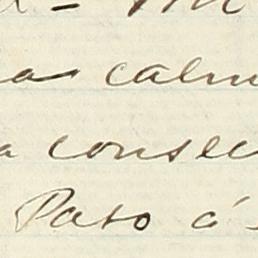 a calm
a consec
Paso á